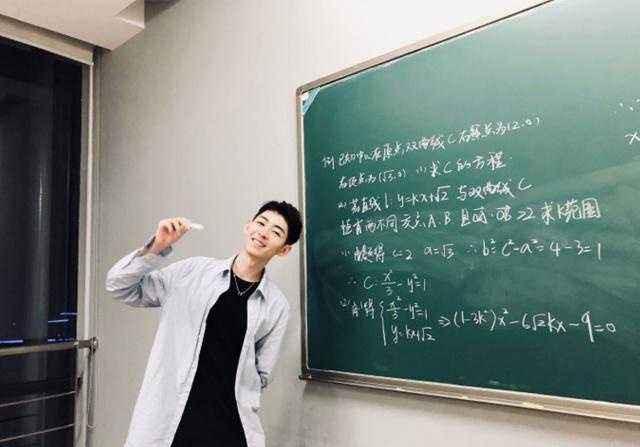 例 已知中心在原点,双曲线C右焦点为(2,0)
右顶点为(√3,0) (1)求C的方程
(2)若直线l:y=kx+√2 与双曲线C
恒有两不同交点A.B且OA·OB>2 求k范围
(1) 由题得 c=2 a=√3 ∴b²=c²-a²=4-3=1
∴C:x²/3-y²=1
(2) 由得 { x²/3-y²=1
y=kx+√2 ⇒(1-3k²)x²-6√2kx-9=0
∴
x